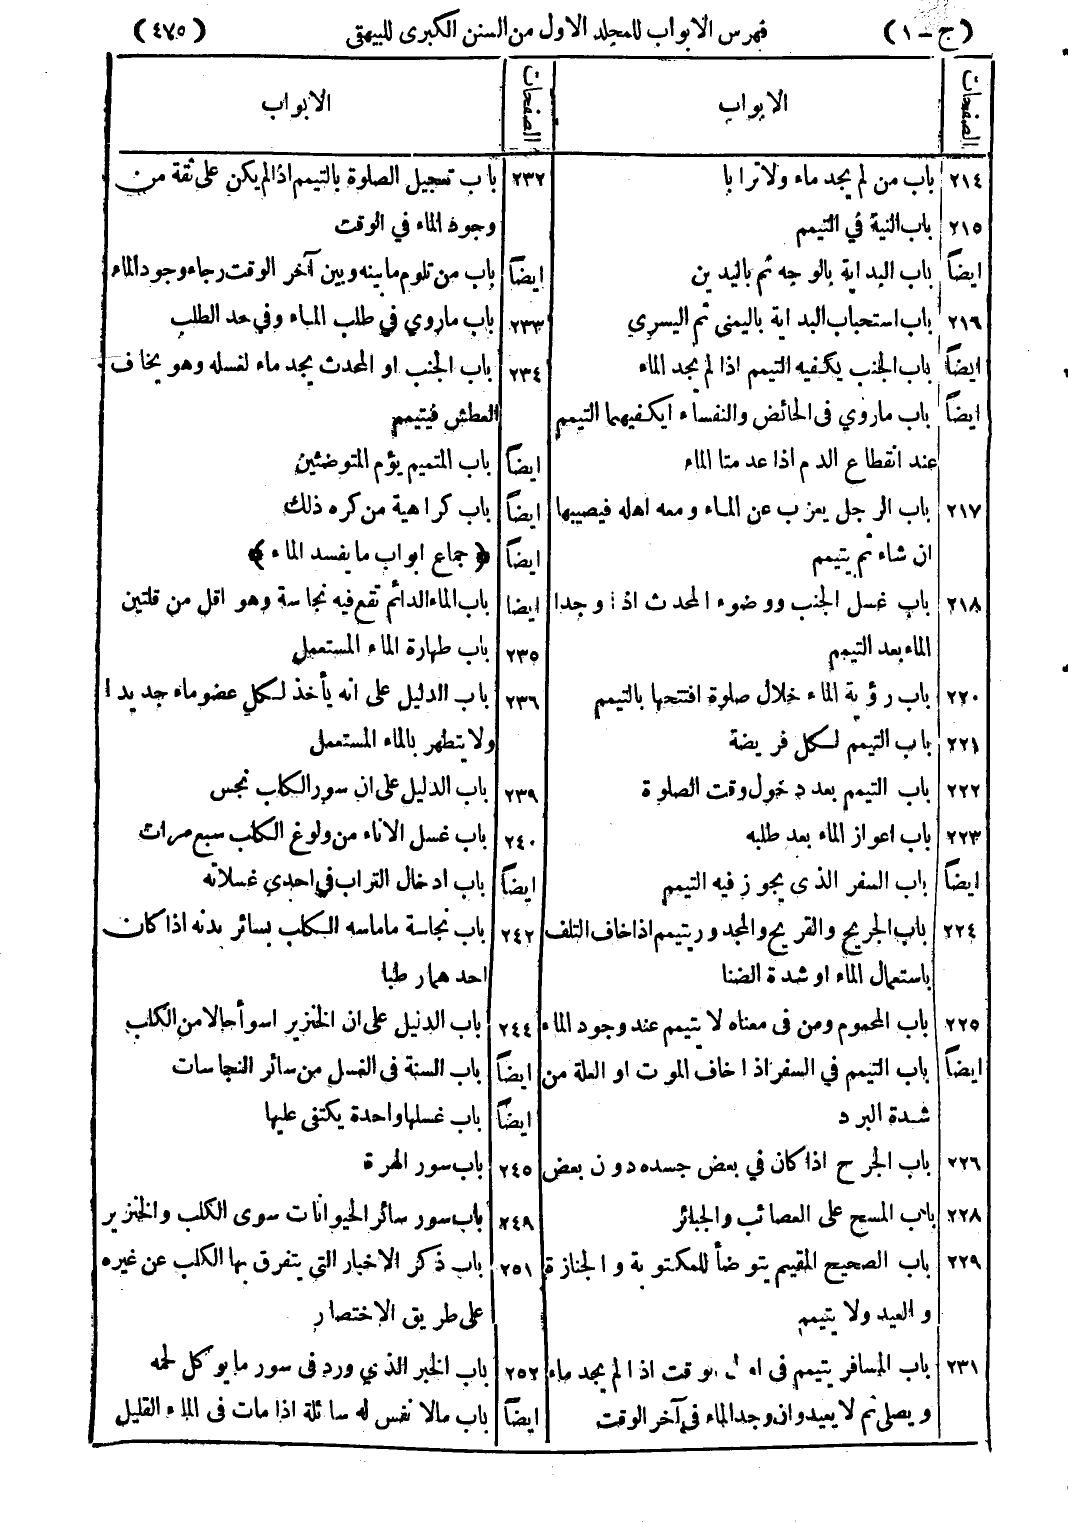 (ج - ١) فهرس الابواب للمجلد الاول من السنن الكبرى للبيهقى (٤٧٥)
الصفحات الابواب
٢١٤ باب من لم يجد ماء ولا ترابا
٢١٥ باب النية في التيمم
ايضاً باب البداية بالوجه ثم باليدين
٢١٦ باب استحباب البداية باليمنى ثم اليسري
ايضاً باب الجنب يكفيه التيمم اذا لم يجد الماء
ايضاً باب ماروي فى الحائض والنفساء ايكفيهما التيمم
عند انقطاع الدم اذا عدمتا الماء
٢١٧ باب الرجل يعزب عن الماء ومعه اهله فيصيبها
ان شاء ثم يتيمم
٢١٨ باب غسل الجنب ووضوء المحدث اذا وجدا
الماء بعد التيمم
٢٢٠ باب رؤية الماء خلال صلوة افتتحها بالتيمم
٢٢١ باب التيمم لكل فريضة
٢٢٢ باب التيمم بعد دخول وقت الصلوة
٢٢٣ باب اعواز الماء بعد طلبه
ايضاً باب السفر الذي يجوز فيه التيمم
٢٢٤ باب الجريح والقريح والمجدور يتيمم اذا خاف التلف
باستعمال الماء او شدة الضنا
٢٢٥ باب المحموم ومن فى معناه لا يتيمم عند وجود الماء
ايضاً باب التيمم في السفر اذا خاف الموت او العلة من
شدة البرد
٢٢٦ باب الجرح اذا كان في بعض جسده دون بعض
٢٢٨ باب المسح على العصائب والجبائر
٢٢٩ باب الصحيح المقيم يتوضأ للمكتوبة والجنازة
والعيد ولا يتيمم
٢٣١ باب المسافر يتيمم فى اول الوقت اذا لم يجد ماء
ويصلى ثم لا يعيد وان وجد الماء فى آخر الوقت
الصفحات الابواب
٢٣٢ باب تعجيل الصلوة بالتيمم اذا لم يكن على ثقة من
وجود الماء في الوقت
ايضاً باب من تلوم ما بينه وبين آخر الوقت رجاء وجود الماء
٢٣٣ باب ماروي في طلب الماء وفى حد الطلب
٢٣٤ باب الجنب او المحدث يجد ماء لغسله وهو يخاف
العطش فيتيمم
ايضاً باب المتيمم يؤم المتوضئين
ايضاً باب كراهية من كره ذلك
ايضاً ﴿ جماع ابواب ما يفسد الماء ﴾
ايضا باب الماء الدائم تقع فيه نجاسة وهو اقل من قلتين
٢٣٥ باب طهارة الماء المستعمل
٢٣٦ باب الدليل على انه يأخذ لكل عضو ماء جديدا
ولا يتطهر بالماء المستعمل
٢٣٩ باب الدليل على ان سور الكلب نجس
٢٤٠ باب غسل الاناء من ولوغ الكلب سبع مرات
ايضاً باب ادخال التراب في احدى غسلاته
٢٤٢ باب نجاسة ما ماسه الكلب بسائر بدنه اذا كان
احدهما رطبا
٢٤٤ باب الدليل على ان الخنزير اسوأ حالا من الكلب
ايضاً باب السنة فى الغسل من سائر النجاسات
ايضاً باب غسلها واحدة يكتفى عليها
٢٤٥ باب سور الهرة
٢٤٩ باب سور سائر الحيوانات سوى الكلب والخنزير
٢٥١ باب ذكر الاخبار التي يتفرق بها الكلب عن غيره
على طريق الاختصار
٢٥٢ باب الخبر الذي ورد فى سور ما يوكل لحمه
ايضاً باب مالا نفس له سائلة اذا مات فى الماء القليل